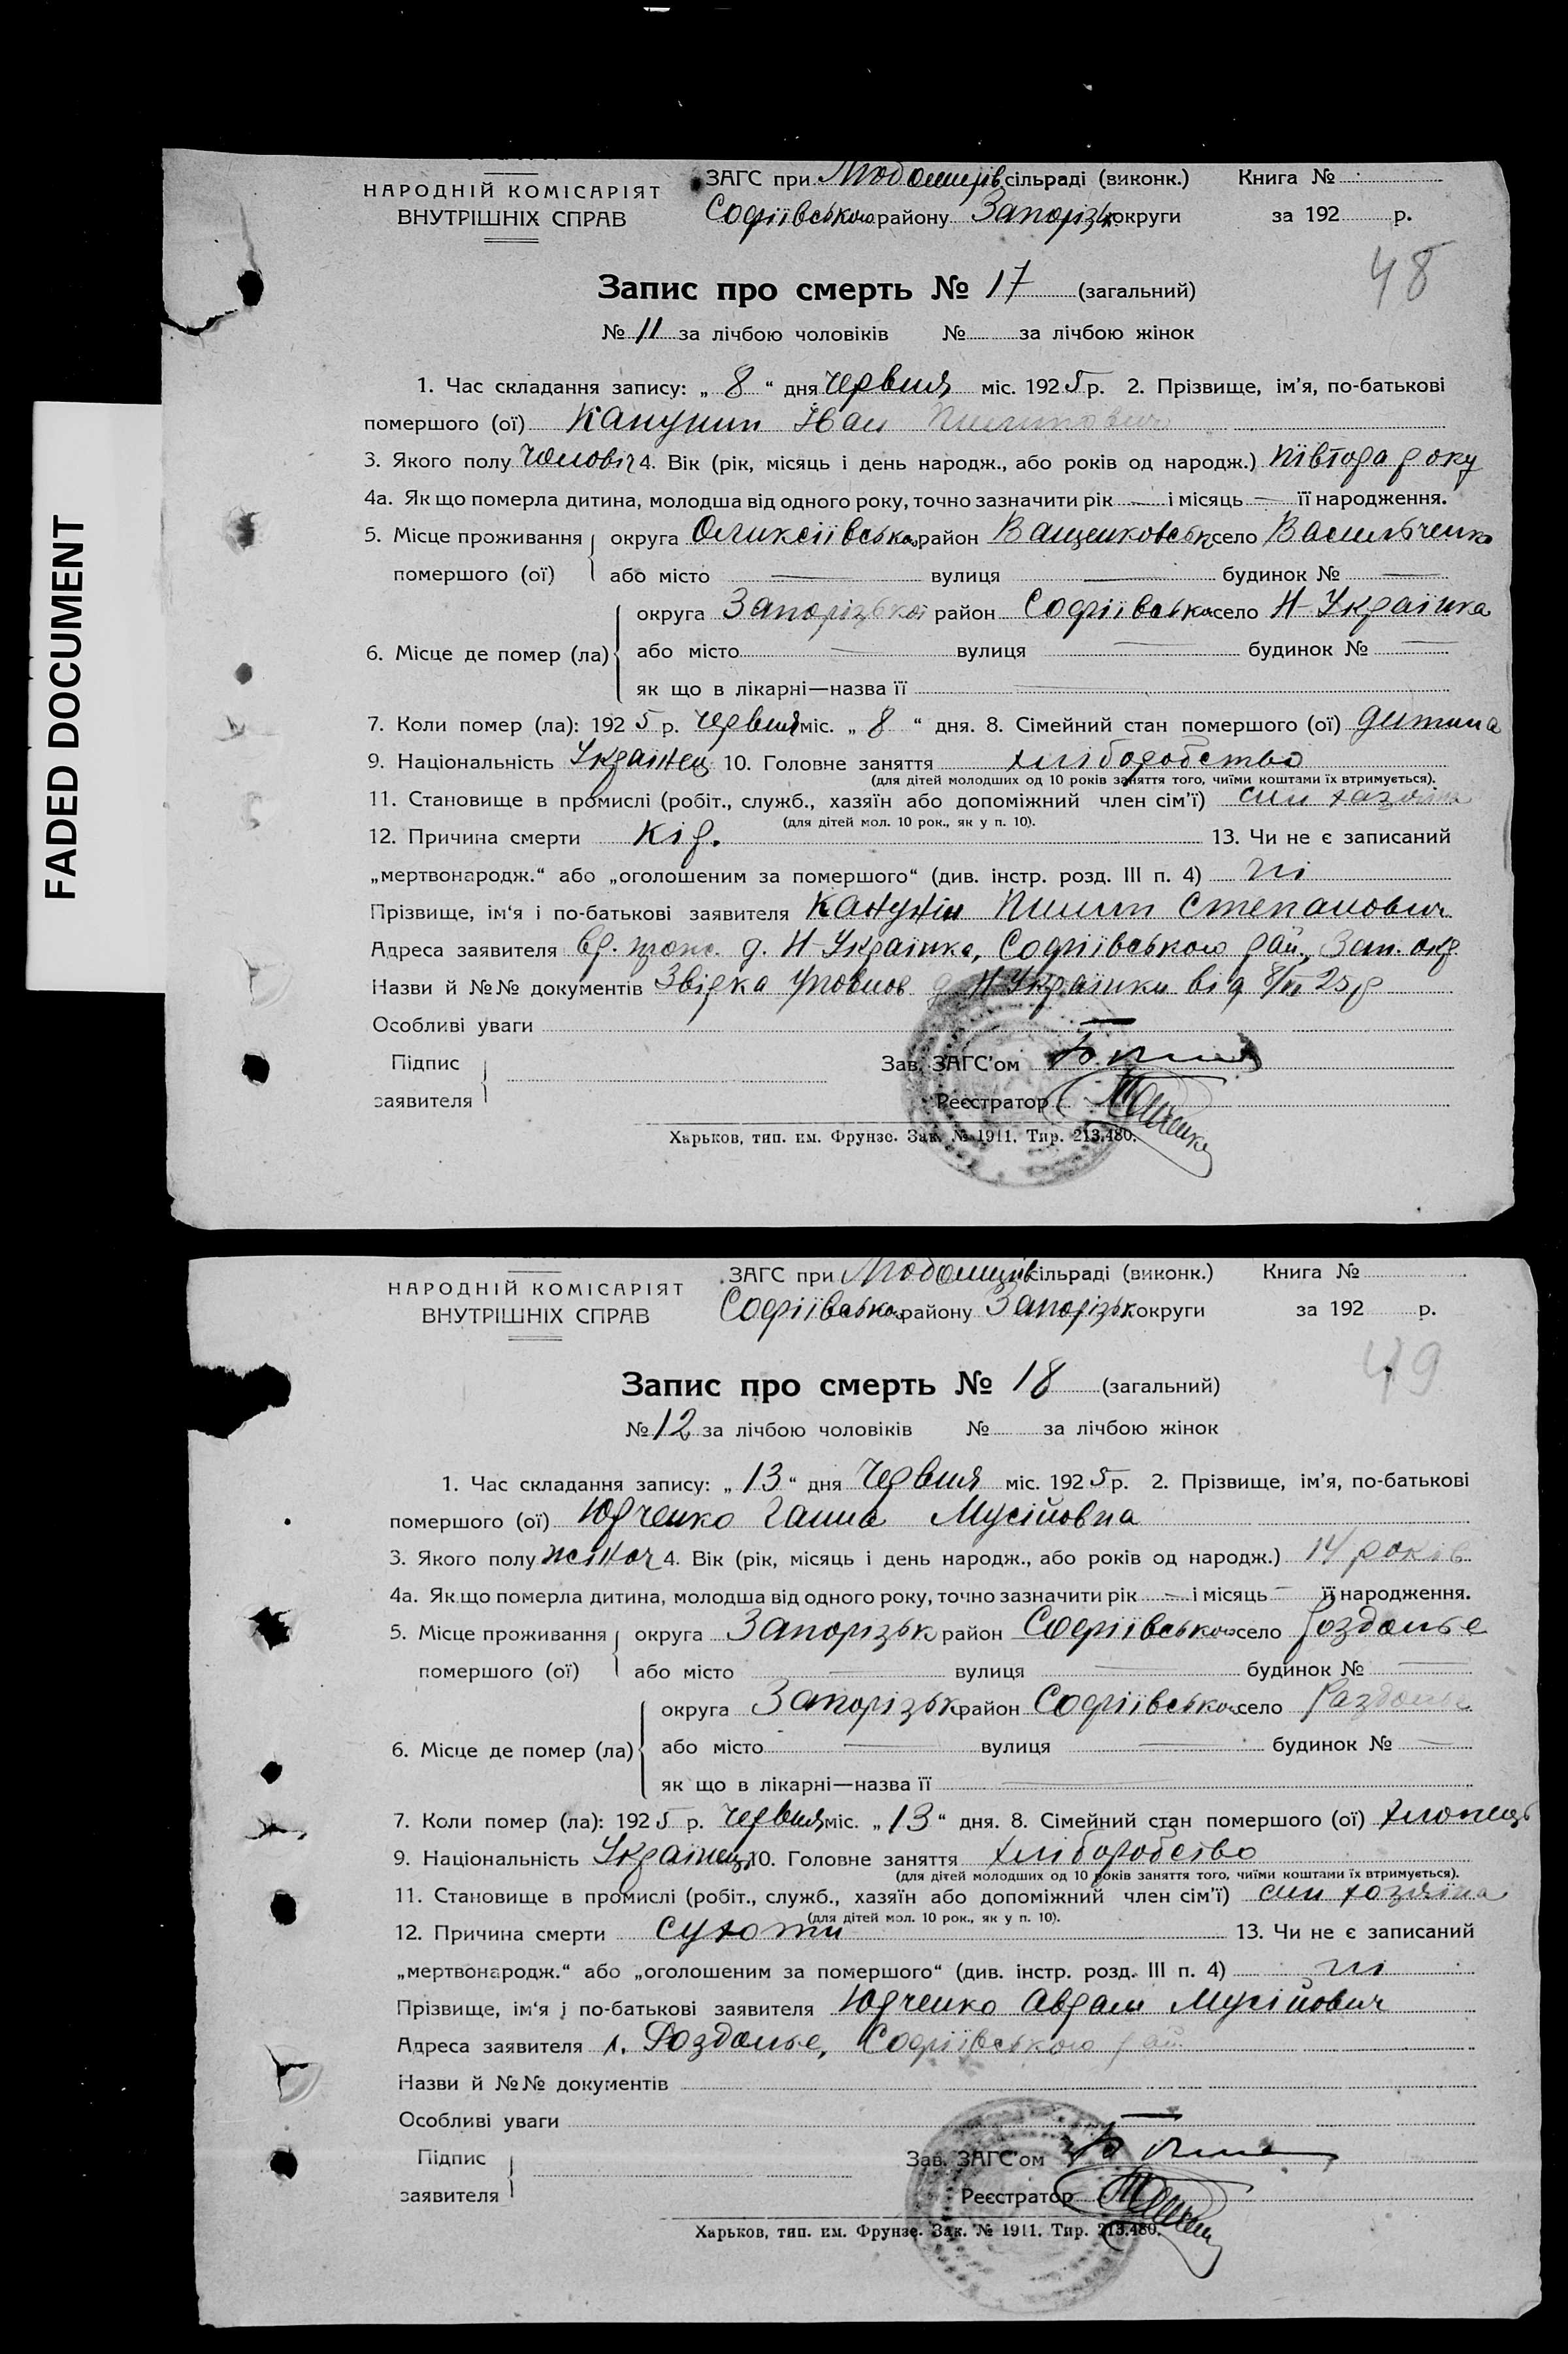 FADED DOCUMENT
НАРОДНІЙ КОМІСАРІЯТ
ВНУТРІШНІХ СПРАВ
ЗАГС при сільраді (виконк.) Книга №
Софіївського району Запорізьк округи за 192 р.
48
Запис про смерть № 17 (загальний)
№ 11 за лічбою чоловіків № за лічбою жінок
1. Час складання запису: „ 8 “ дня червня міс. 1925 р. 2. Прізвище, ім’я, по-батькові
помершого (ої) Канунип Іван Пилипович
3. Якого полу чоловіч 4. Вік (рік, місяць і день народж., або років од народж.) півтора року
4а. Як що померла дитина, молодша від одного року, точно зазначити рік — і місяць — її народження.
5. Місце проживання округа Оликсіївського район Ващенковськ село Васильченко
помершого (ої) або місто — вулиця — будинок № —
округа Запорізької район Софіївсько село Н-Українка
6. Місце де помер (ла) або місто — вулиця — будинок № —
як що в лікарні—назва її —
7. Коли помер (ла): 1925 р. червня міс. „ 8 “ дня. 8. Сімейний стан помершого (ої) дитина
9. Національність Українец 10. Головне заняття хліборобство
(для дітей молодших од 10 років заняття того, чиїми коштами їх втримується).
11. Становище в промислі (робіт., служб., хазяїн або допоміжний член сім’ї) син хазяїна
(для дітей мол. 10 рок., як у п. 10).
12. Причина смерти кір. 13. Чи не є записаний
„мертвонародж.“ або „оголошеним за помершого“ (див. інстр. розд. III п. 4) ні
Прізвище, ім‘я і по-батькові заявителя Канунін Пилип Степанович
Адреса заявителя д. Н-Українка, Софіївського рай., Зап. окр.
Назви й №№ документів Звідка уповнов д Н-Українки від 8/VI 25 р
Особливі уваги —
Підпис
заявителя
Зав. ЗАГС’ом
Реєстратор
Харьков, тип. им. Фрунзе. Зак. № 1911. Тир. 213.480.
НАРОДНІЙ КОМІСАРІЯТ
ВНУТРІШНІХ СПРАВ
ЗАГС при сільраді (виконк.) Книга №
Софіївського району Запорізьк округи за 192 р.
49
Запис про смерть № 18 (загальний)
№ 12 за лічбою чоловіків № за лічбою жінок
1. Час складання запису: „ 13 “ дня червня міс. 1925 р. 2. Прізвище, ім’я, по-батькові
помершого (ої) Юрченко Ганна Мусійовна
3. Якого полу жіноч 4. Вік (рік, місяць і день народж., або років од народж.) 14 років
4а. Як що померла дитина, молодша від одного року, точно зазначити рік — і місяць — її народження.
5. Місце проживання округа Запорізьк район Софіївського село Роздолье
помершого (ої) або місто — вулиця — будинок № —
округа Запорізьк район Софіївського село Раздолье
6. Місце де помер (ла) або місто — вулиця — будинок № —
як що в лікарні—назва її —
7. Коли помер (ла): 1925 р. червня міс. „ 13 “ дня. 8. Сімейний стан помершого (ої) хлопець
9. Національність Українец 10. Головне заняття хліборобство
(для дітей молодших од 10 років заняття того, чиїми коштами їх втримується).
11. Становище в промислі (робіт., служб., хазяїн або допоміжний член сім’ї) син хозяїна
(для дітей мол. 10 рок., як у п. 10).
12. Причина смерти сухоти 13. Чи не є записаний
„мертвонародж.“ або „оголошеним за помершого“ (див. інстр. розд. III п. 4) ні
Прізвище, ім‘я і по-батькові заявителя Юрченко Аврам Мусійович
Адреса заявителя Роздолье, Софіївського рай.
Назви й №№ документів
Особливі уваги —
Підпис
заявителя
Зав. ЗАГС’ом
Реєстратор
Харьков, тип. им. Фрунзе. Зак. № 1911. Тир. 213.480.